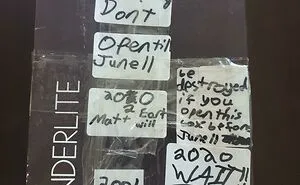 Don't
Open till
June 11
2020
Matt
Will
2021
NDERLITE
be
destroyed
if you
open this
box before
June 11
2020
WAIT!!